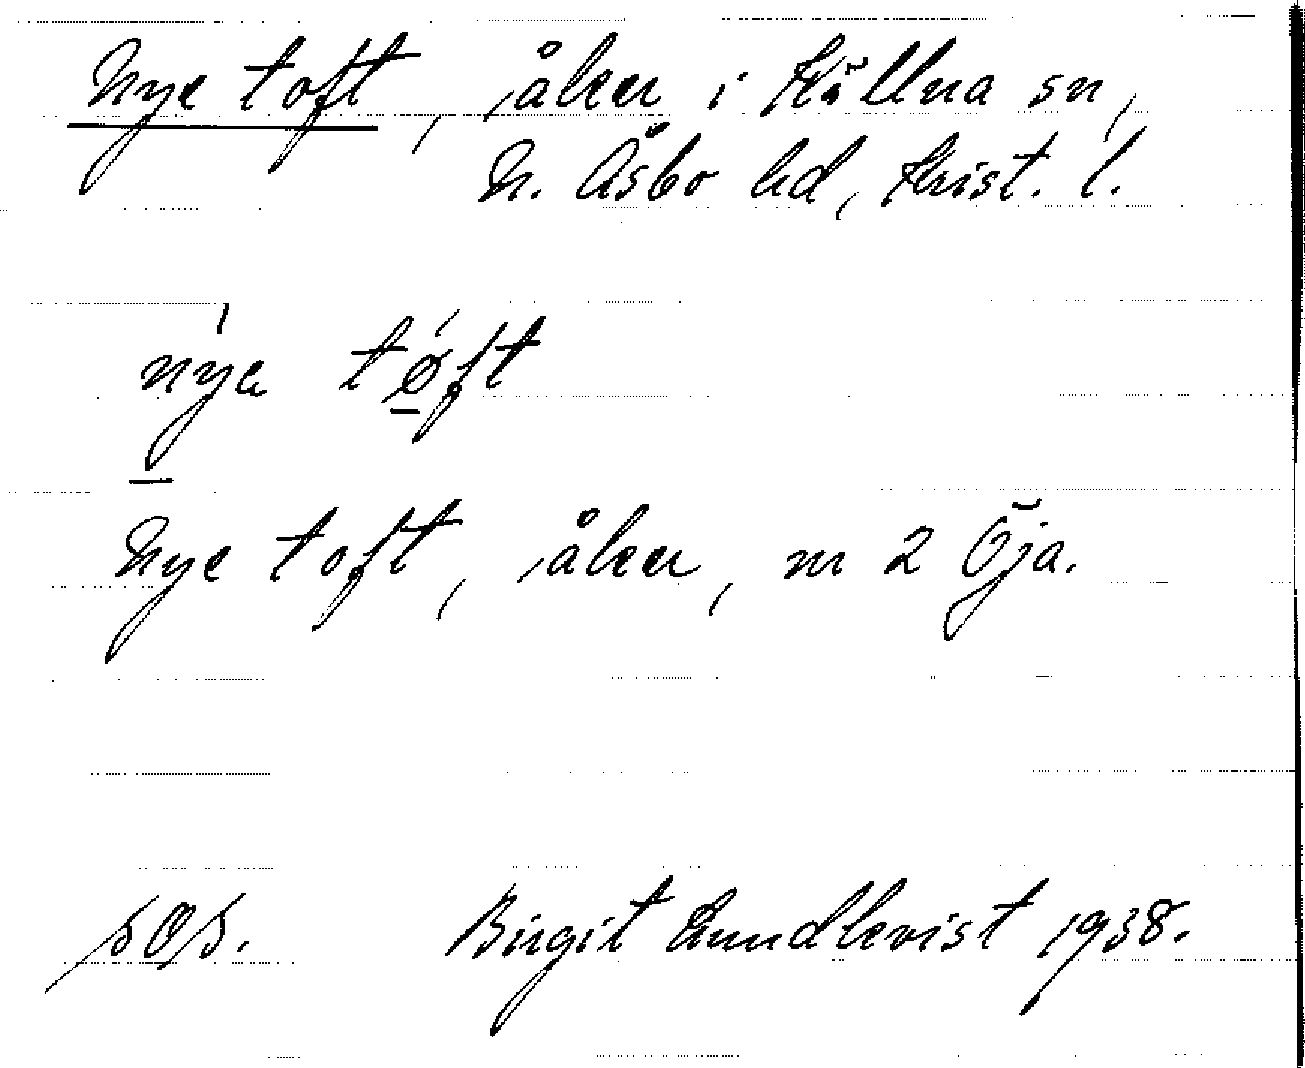 Nye toft, åker i Källna sn,
N. Åsbo hd, Krist. l.
nyə tøft
Nye toft, åker, nr 2 Öja.
sos. Birgit Lundkvist 1938.